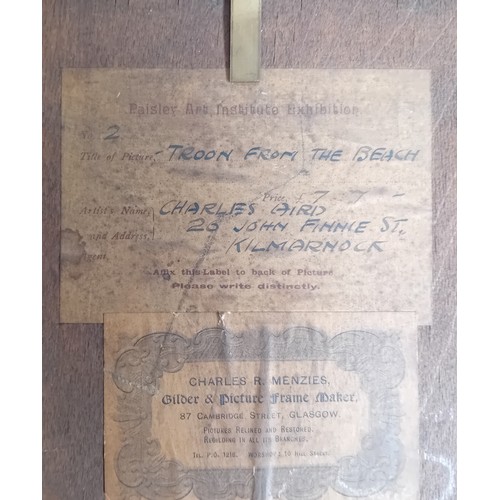 Paisley Art Institute Exhibition
2
Title of Picture, - TROON FROM THE BEACH
Price, £7-7-
Artist's Name, CHARLES AIRD
and Address, 20 JOHN FINNIE ST,
KILMARNOCK
Affix this Label to back of Picture
Please write distinctly.
CHARLES R. MENZIES,
Gilder & Picture Frame Maker,
87 CAMBRIDGE STREET, GLASGOW.
PICTURES RELINED AND RESTORED.
REGILDING IN ALL ITS BRANCHES.
TEL. P.O. 1216. WORKSHOPS 10 HILL STREET.